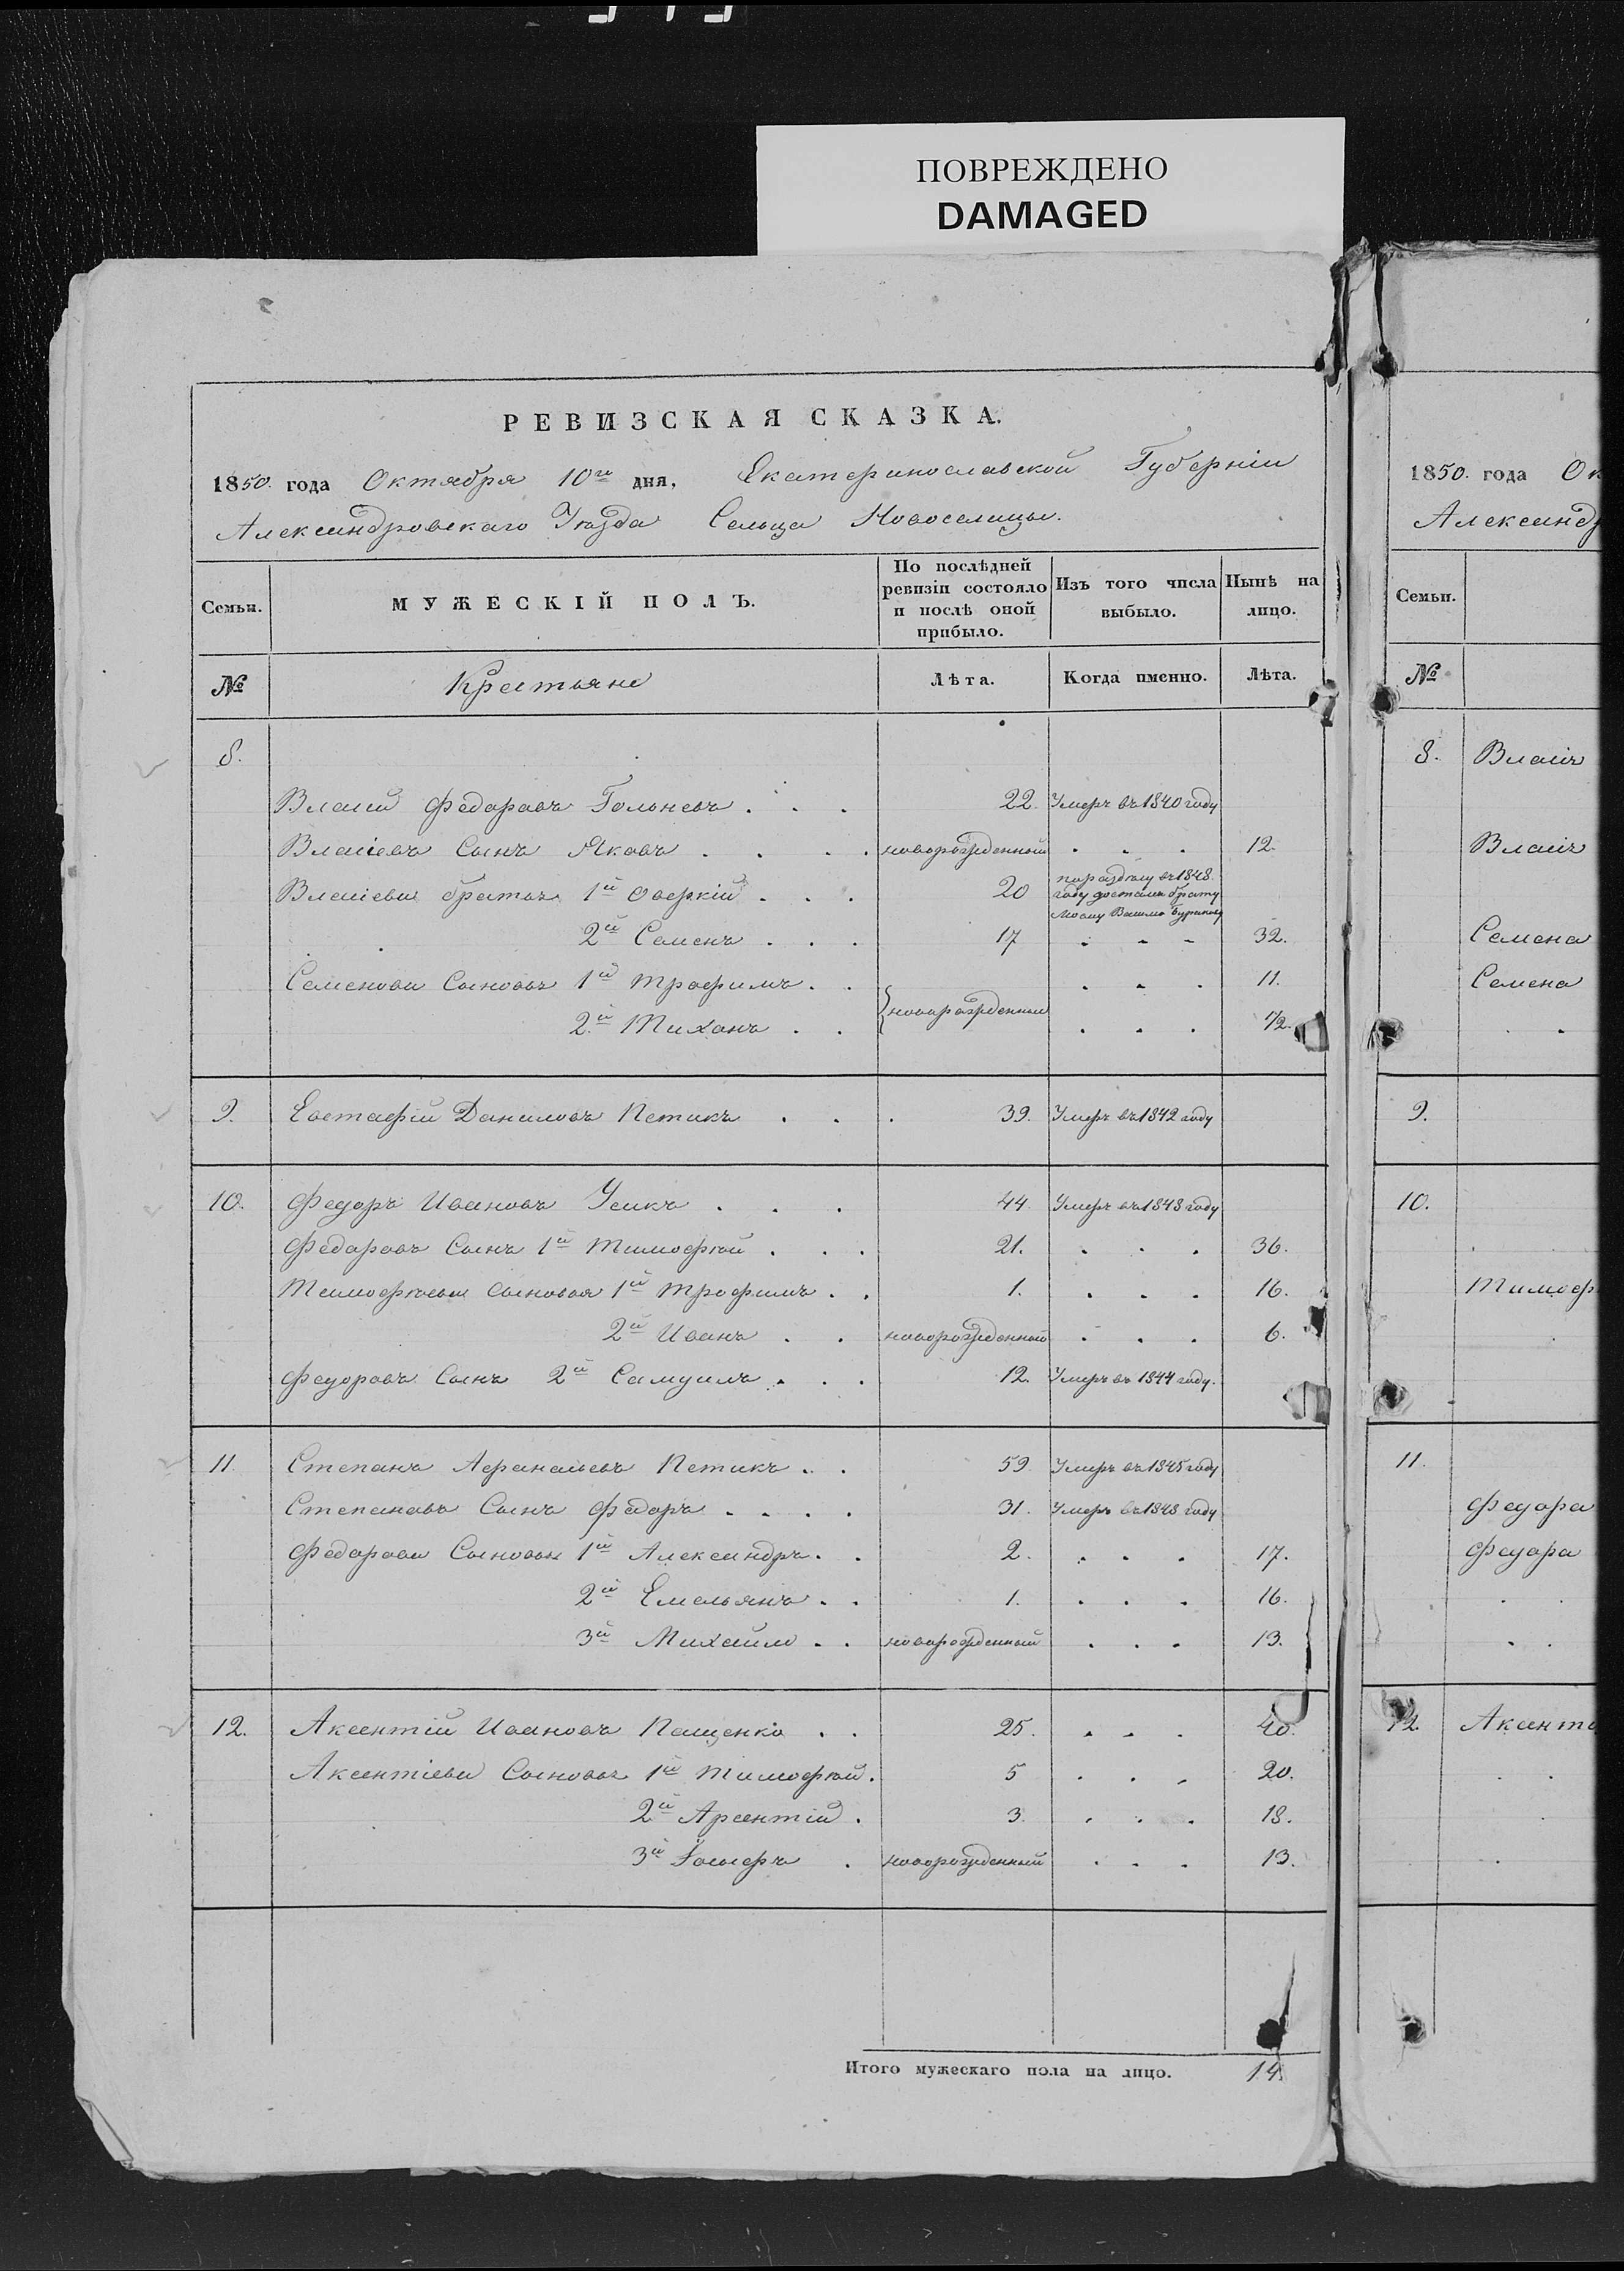 ПОВРЕЖДЕНО
DAMAGED
РЕВИЗСКАЯ СКАЗКА.
1850. года Октября 10го дня, Екатеринославской Губерніи
Александровскаго Уѣзда Сельца Новоселицы.
Семьи. МУЖЕСКІЙ ПОЛЪ. По послѣдней ревизіи состояло и послѣ оной прибыло. Изъ того числа выбыло. Нынѣ на лицо.
№ Крестьяне Лѣта. Когда именно. Лѣта.
8.
Власій Федоровъ 22. Умеръ въ 1840 году
Власіевъ Сынъ Яковъ . . . . новорожденный . . . 12.
Власіевы братья 1й Оверкій . . . 20 по раздѣлу въ 1848. году достался брату моему
2й Семенъ . . . 17 . . . 32.
Семеновы Сыновья 1й Трофимъ . . новорожденные . . . 11.
2й Тихонъ . . . . . 1/2.
9. Евстафій Даниловъ Петикъ . . . 39. Умеръ въ 1842 году
10. Федоръ Ивановъ Усикъ . . . 44. Умеръ въ 1848 году
Федоровъ Сынъ 1й Тимофѣй . . . 21. . . . 36.
Тимофѣевы Сыновья 1й Трофимъ . . 1. . . . 16.
2й Иванъ . . новорожденный . . . 6.
Федоровъ Сынъ 2й Самуилъ . . . 12. Умеръ въ 1844 году.
11. Степанъ Афанасьевъ Петикъ . . 59. Умеръ въ 1845 году
Степановъ Сынъ Федоръ . . . . 31. Умеръ въ 1848 году
Федоровы Сыновья 1й Александръ . . 2. . . . 17.
2й Емельянъ . . 1. . . . 16.
3й Михайло . . новорожденный . . . 13.
12. Аксентій Ивановъ Пащенко . . 25. . . . 40.
Аксентіевы Сыновья 1й Тимофѣй. 5 . . . 20.
2й Арсентій . 3. . . . 18.
3й . новорожденный . . . 13.
Итого мужескаго пола на лицо. 14.
1850. года Ок
Александ
Семьи.
№
8. Власія
Власія
Семена
Семена
9.
10.
Тимоф
11.
Федора
Федора
12. Аксенті